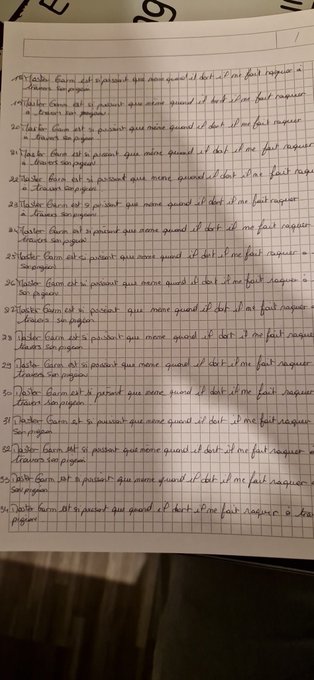 E
ng
1
18 Master Garm est si puissant que meme quand il dort il me fait raquer à
travers son pigeon
19 Master Garm est si puissant que meme quand il dort il me fait raquer
à travers son pigeon
20 Master Garm est si puissant que meme quand il dort il me fait raquer
à travers son pigeon
21 Master Garm est si puissant que même quand il dort il me fait raquer
à travers son pigeon
22 Master Garm est si puissant que meme quand il dort il me fait raqu
à travers son pigeon
23 Master Garm est si puissant que meme quand il dort il me fait raquer
à travers son pigeon
24 Master Garm est si puissant que meme quand il dort il me fait raquer
travers son pigeon
25 Master Garm est si puissant que meme quand il dort il me fait raquer à
son pigeon
26 Master Garm est si puissant que meme quand il dort il me fait raquer à
son pigeon
27 Master Garm est si puissant que meme quand il dort il me fait raquer
travers son pigeon
28 Master Garm est si puissant que meme quand il dort il me fait raquer
travers son pigeon
29 Master Garm est si puissant que meme quand il dort il me fait raquer
travers son pigeon
30 Master Garm est si puissant que meme quand il dort il me fait raquer
travers son pigeon
31 Master Garm est si puissant que meme quand il dort il me fait raquer
son pigeon
32 Master Garm est si puissant que meme quand il dort il me fait raquer
travers son pigeon
33 Master Garm est si puissant que meme quand il dort il me fait raquer
son pigeon
34 Master Garm est si puissant que quand il dort il me fait raquer à tra
pigeon